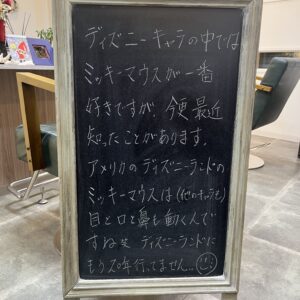 ディズニーキャラの中では
ミッキーマウスが一番
好きですが、今更最近
知ったことがあります。
アメリカのディズニーランドの
ミッキーマウスは(他のキャラも)
目と口と鼻も動くんで
すね笑 ディズニーランドに
もう20年行ってません…